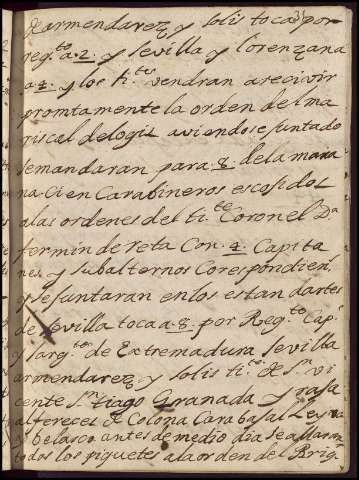 de armendarez y solis toca por
reg.to a 2 y sevilla y lorenzana
a 4 y los ti.tes vendran a recivir
promtamente la orden del ma
riscal de logis aviendose juntado
se mandaran para 8 de la maña
na Cien Carabineros escojidos
a las ordenes del ti.te Coronel D.n
fermin de reta Con 4 Capita
nes y subalternos Corespondien.s
y se juntaran en los estandartes
de sevilla toca a 8 por Reg.to Cap.
y sarg.to de Extremadura Sevilla
armendarez y solis ti.te de S.n vi
cente S.n tiago Granada y rasa
alfereces de Colona Carabajal Leyva
y belasco antes de medio dia se allaran
todos los piquetes a la orden del Brig.